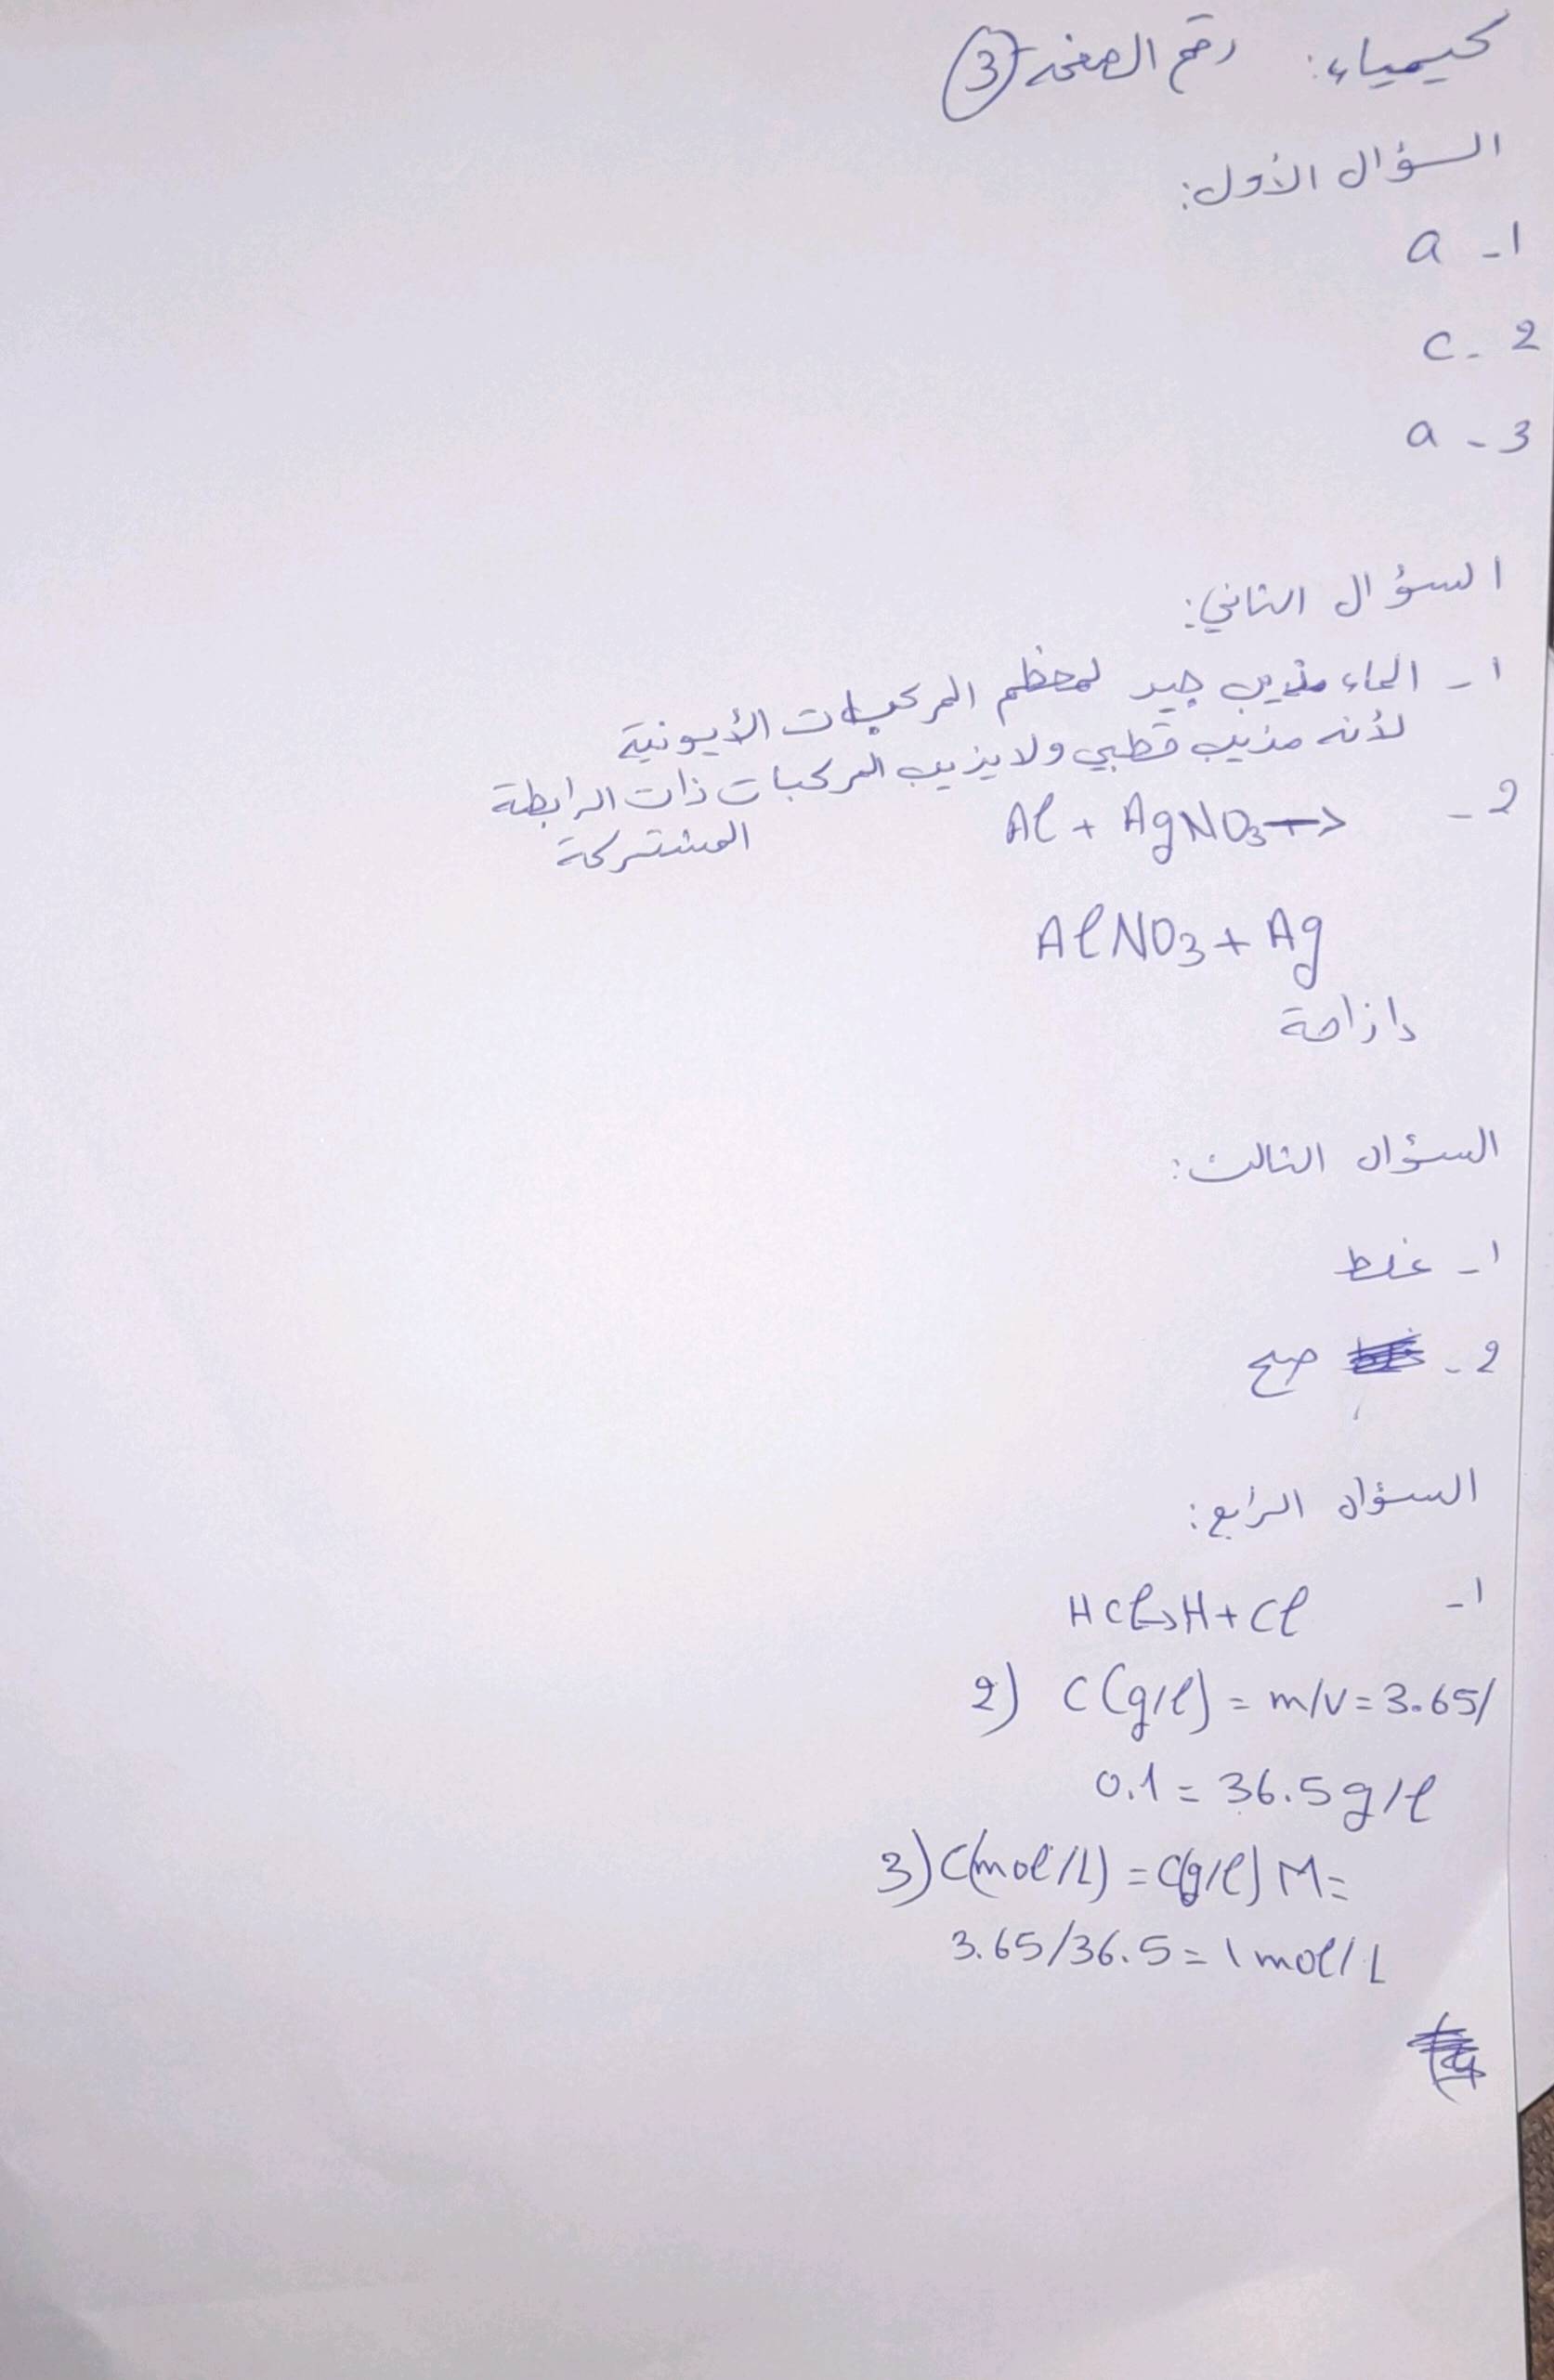 كيمياء: رقم الصفحة 3
السؤال الأول:
1- a
2- c
3- a
السؤال الثاني:
1- الماء مذيب جيد لمعظم المركبات الأيونية
لأنه مذيب قطبي ولا يذيب المركبات ذات الرابطة
المشتركة
2- Al + AgNO3 →
AlNO3 + Ag
إزاحة
السؤال الثالث:
1- غلط
2- صح
السؤال الرابع:
1- HCl → H + Cl
2) C(g/l) = m/v = 3.65/
0.1 = 36.5 g/l
3) C(mol/L) = C(g/l) M =
3.65/36.5 = 1 mol/L